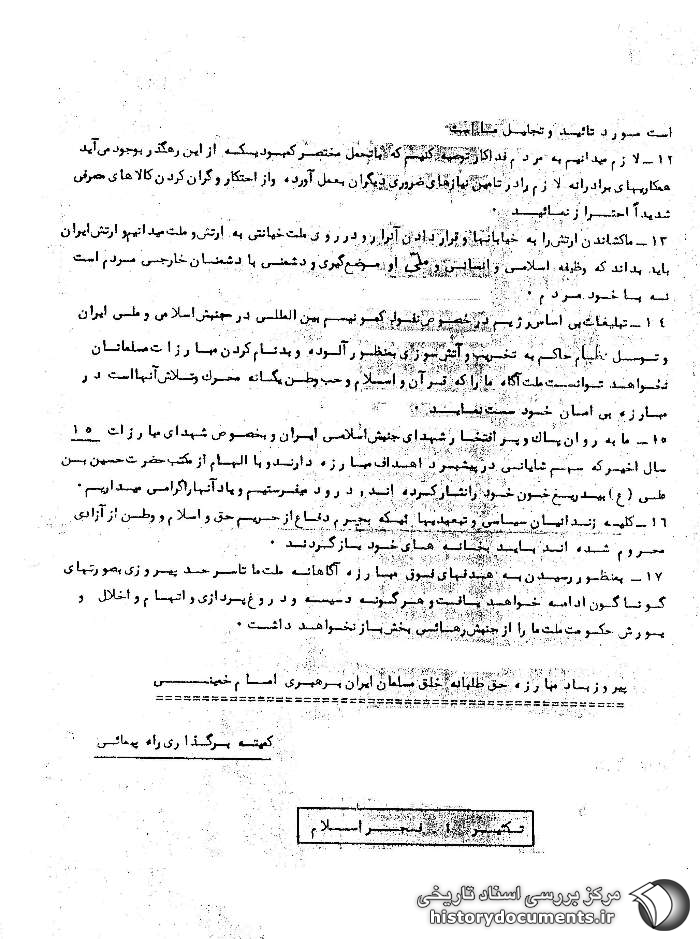 است مورد تائید و تجلیل ما است
۱۲ـ لازم میدانیم به مردم فداکار توصیه کنیم که باتحمل مختصر کمبودیکه از این رهگذر بوجود می‌آید
همکاریهای برادرانه لازم را در تامین نیازهای ضروری دیگران بعمل آورده و از احتکار و گران کردن کالاهای مصرفی
شدیداً احتراز نمائید .
۱۳ـ ماکشاندن ارتش را به خیابانها و قرار دادن آنرا رو در روی ملت خیانتی به ارتش و ملت میدانیم و ارتش ایران
باید بداند که وظیفه اسلامی و انسانی و ملی او موضع‌گیری و دشمنی با دشمنان خارجی مردم است
نه با خود مردم .
۱۴ـ تبلیغات بی اساس رژیم در خصوص نفوذ کمونیسم بین المللی در جنبش اسلامی و ملی ایران
و توسل نظام حاکم به تخریب و آتش سوزی بمنظور آلوده و بدنام کردن مبارزات مسلمانان
نخواهد توانست ملت آگاه ما را که قرآن و اسلام و حب وطن یگانه محرک و تلاش آنها است در
مبارزه بی امان خود سست نماید .
۱۵ـ ما به روان پاک و پر افتخار شهدای جنبش اسلامی ایران و بخصوص شهدای مبارزات ۱۵
سال اخیر که سهم شایانی در پیشبرد اهداف مبارزه دارند و با الهام از مکتب حضرت حسین بن
علی (ع) بیدریغ خون خود را نثار کرده اند ، درود میفرستیم و یاد آنها را گرامی میداریم .
۱۶ـ کلیه زندانیان سیاسی و تبعیدیها ئیکه بجرم دفاع از حریم حق و اسلام و وطن از آزادی
محروم شده اند باید بخانه های خود باز گردند .
۱۷ـ بمنظور رسیدن به هدفهای فوق مبارزه آگاهانه ملت ما تا سر حد پیروزی بصورتهای
گوناگون ادامه خواهد یافت و هر گونه دسیسه و دروغ پردازی و اتهام و اخلال و
یورش حکومت ملت ما را از جنبش رهائی بخش باز نخواهد داشت .
پیروز باد مبارزه حق طلبانه خلق مسلمان ایران برهبری امام خمینی
کمیته برگذاری راه پیمائی
تکثیر : فجر اسلام
مرکز بررسی اسناد تاریخی
historydocuments.ir